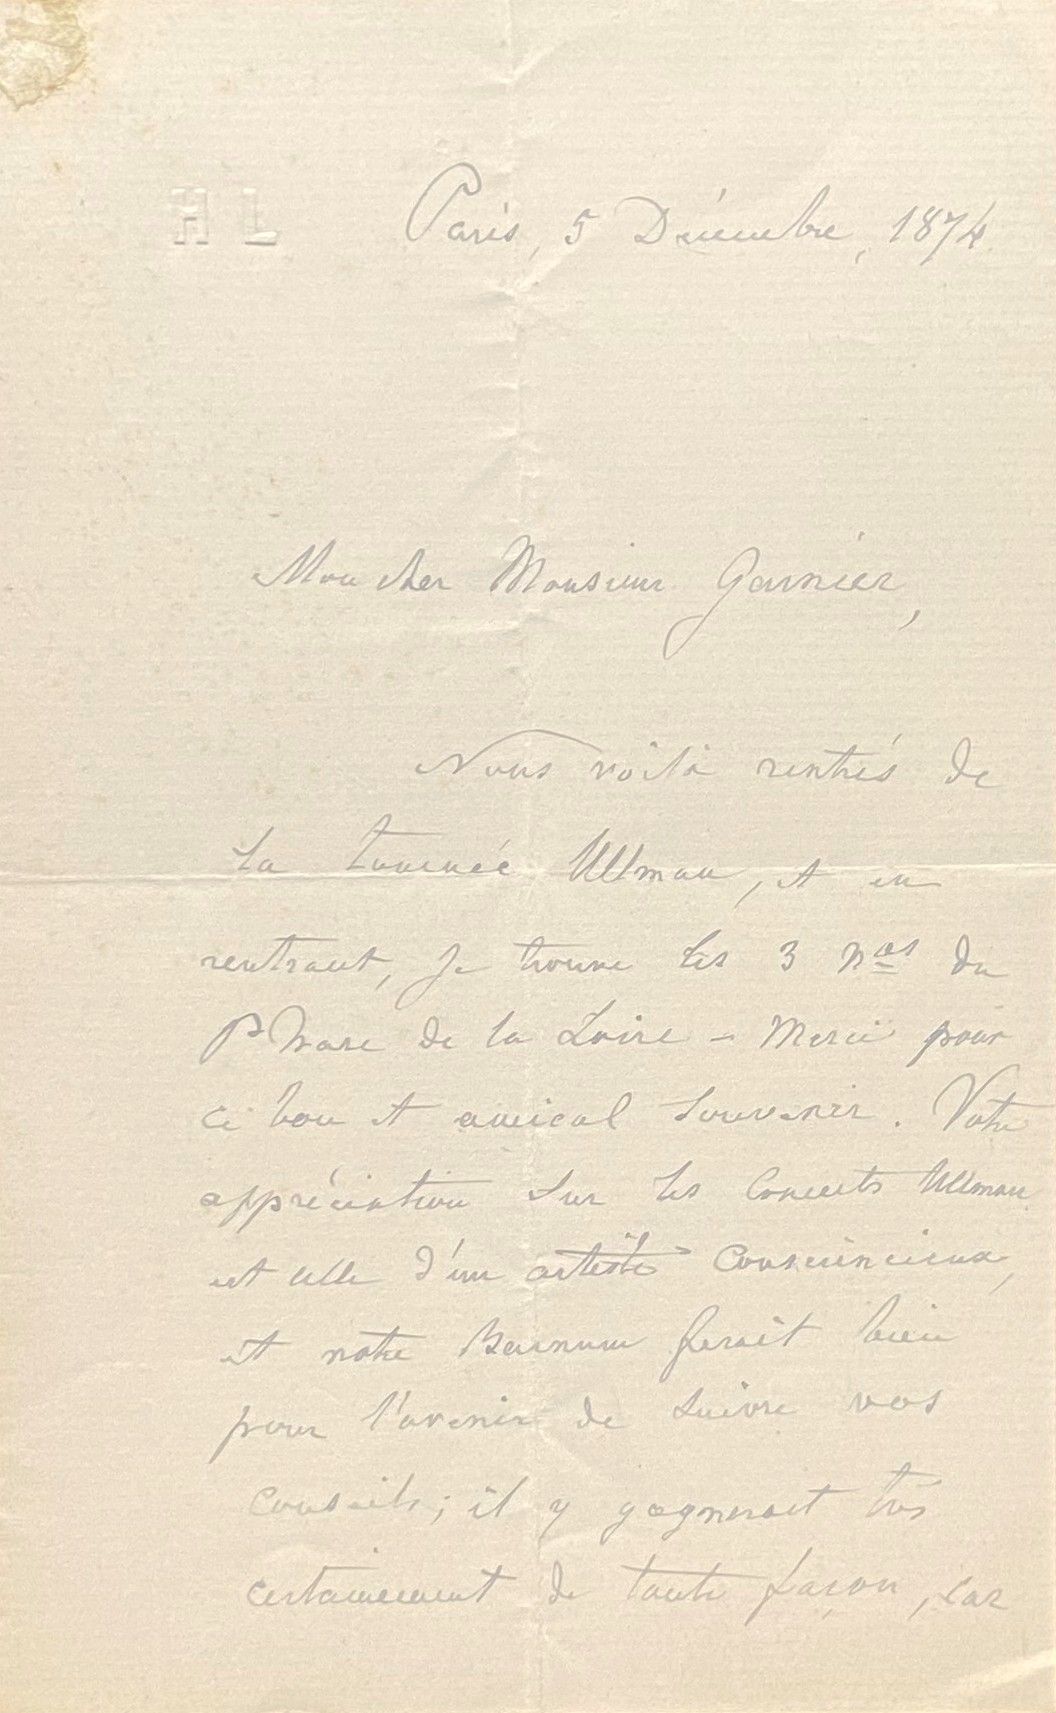 H L
Paris, 5 Décembre, 1874.
Mon cher Monsieur Garnier,
Nous voilà rentrés de
la tournée Ullman, et en
rentrant, je trouve les 3 nos du
Phare de la Loire – Merci pour
ce bon et amical souvenir. Votre
appréciation sur les Concerts Ullman
est celle d'un artiste consciencieux,
et notre Barnum ferait bien
pour l'avenir de suivre vos
conseils; il y gagnerait très
certainement de toute façon, car